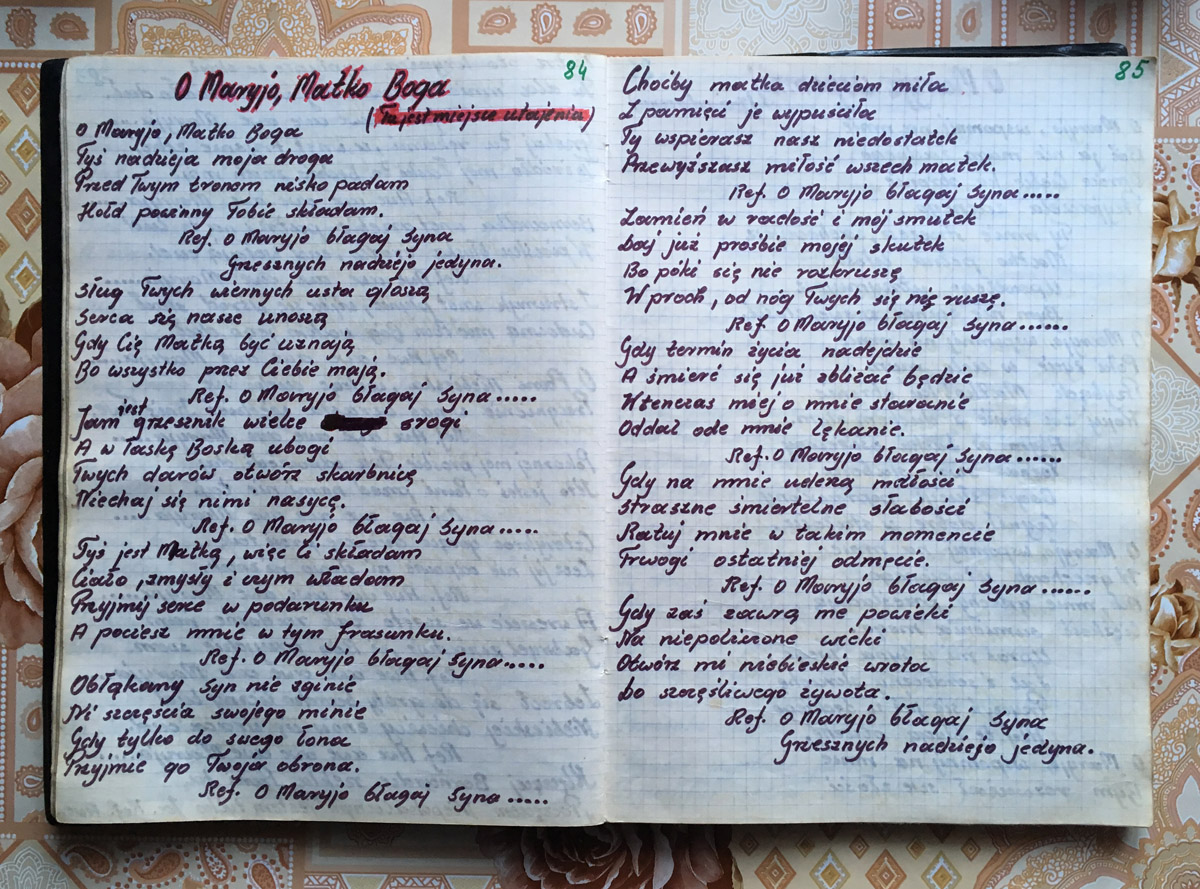 84
O Maryjo, Matko Boga
(Tu jest miejsce utajenia)
O Maryjo, Matko Boga
Tyś nadzieja moja droga
Przed Twym tronem nisko padam
Hołd powinny Tobie składam.
Ref. O Maryjo błagaj Syna
Grzesznych nadziejo jedyna.
Sług Twych wiernych usta głoszą
Serca się nasze unoszą
Gdy Cię Matką być uznają
Bo wszystko przez Ciebie mają.
Ref. O Maryjo błagaj Syna.....
jest
Jam grzesznik wielce srogi
A w łaskę Boską ubogi
Twych darów otwórz skarbnicę
Niechaj się nimi nasycę.
Ref. O Maryjo błagaj Syna.....
Tyś jest Matką, więc Ci składam
Ciało, zmysły i czym władam
Przyjmij serce w podarunku
A pociesz mnie w tym frasunku.
Ref. O Maryjo błagaj Syna.....
Obłąkany syn nie zginie
Ni szczęścia swojego minie
Gdy tylko do swego łona
Przyjmie go Twoja obrona.
Ref. O Maryjo błagaj Syna.....
85
Choćby matka dzieciom miła
Z pamięci je wypuściła
Ty wspierasz nasz niedostatek
Przewyższasz miłość wszech matek.
Ref. O Maryjo błagaj Syna.....
Zamień w radość i mój smutek
Daj już prośbie mojej skutek
Bo póki się nie rozkruszę
W proch, od nóg Twych się nie ruszę.
Ref. O Maryjo błagaj Syna......
Gdy termin życia nadejdzie
A śmierć się już zbliżać będzie
Wtenczas miej o mnie staranie
Oddal ode mnie lękanie.
Ref. O Maryjo błagaj Syna......
Gdy na mnie uderzą mdłości
Straszne śmiertelne słabości
Ratuj mnie w takim momencie
Trwogi ostatniej odmęcie.
Ref. O Maryjo błagaj Syna......
Gdy zaś zawrą me powieki
Na niepoliczone wieki
Otwórz mi niebieskie wrota
Do szczęśliwego żywota.
Ref. O Maryjo błagaj Syna
Grzesznych nadziejo jedyna.